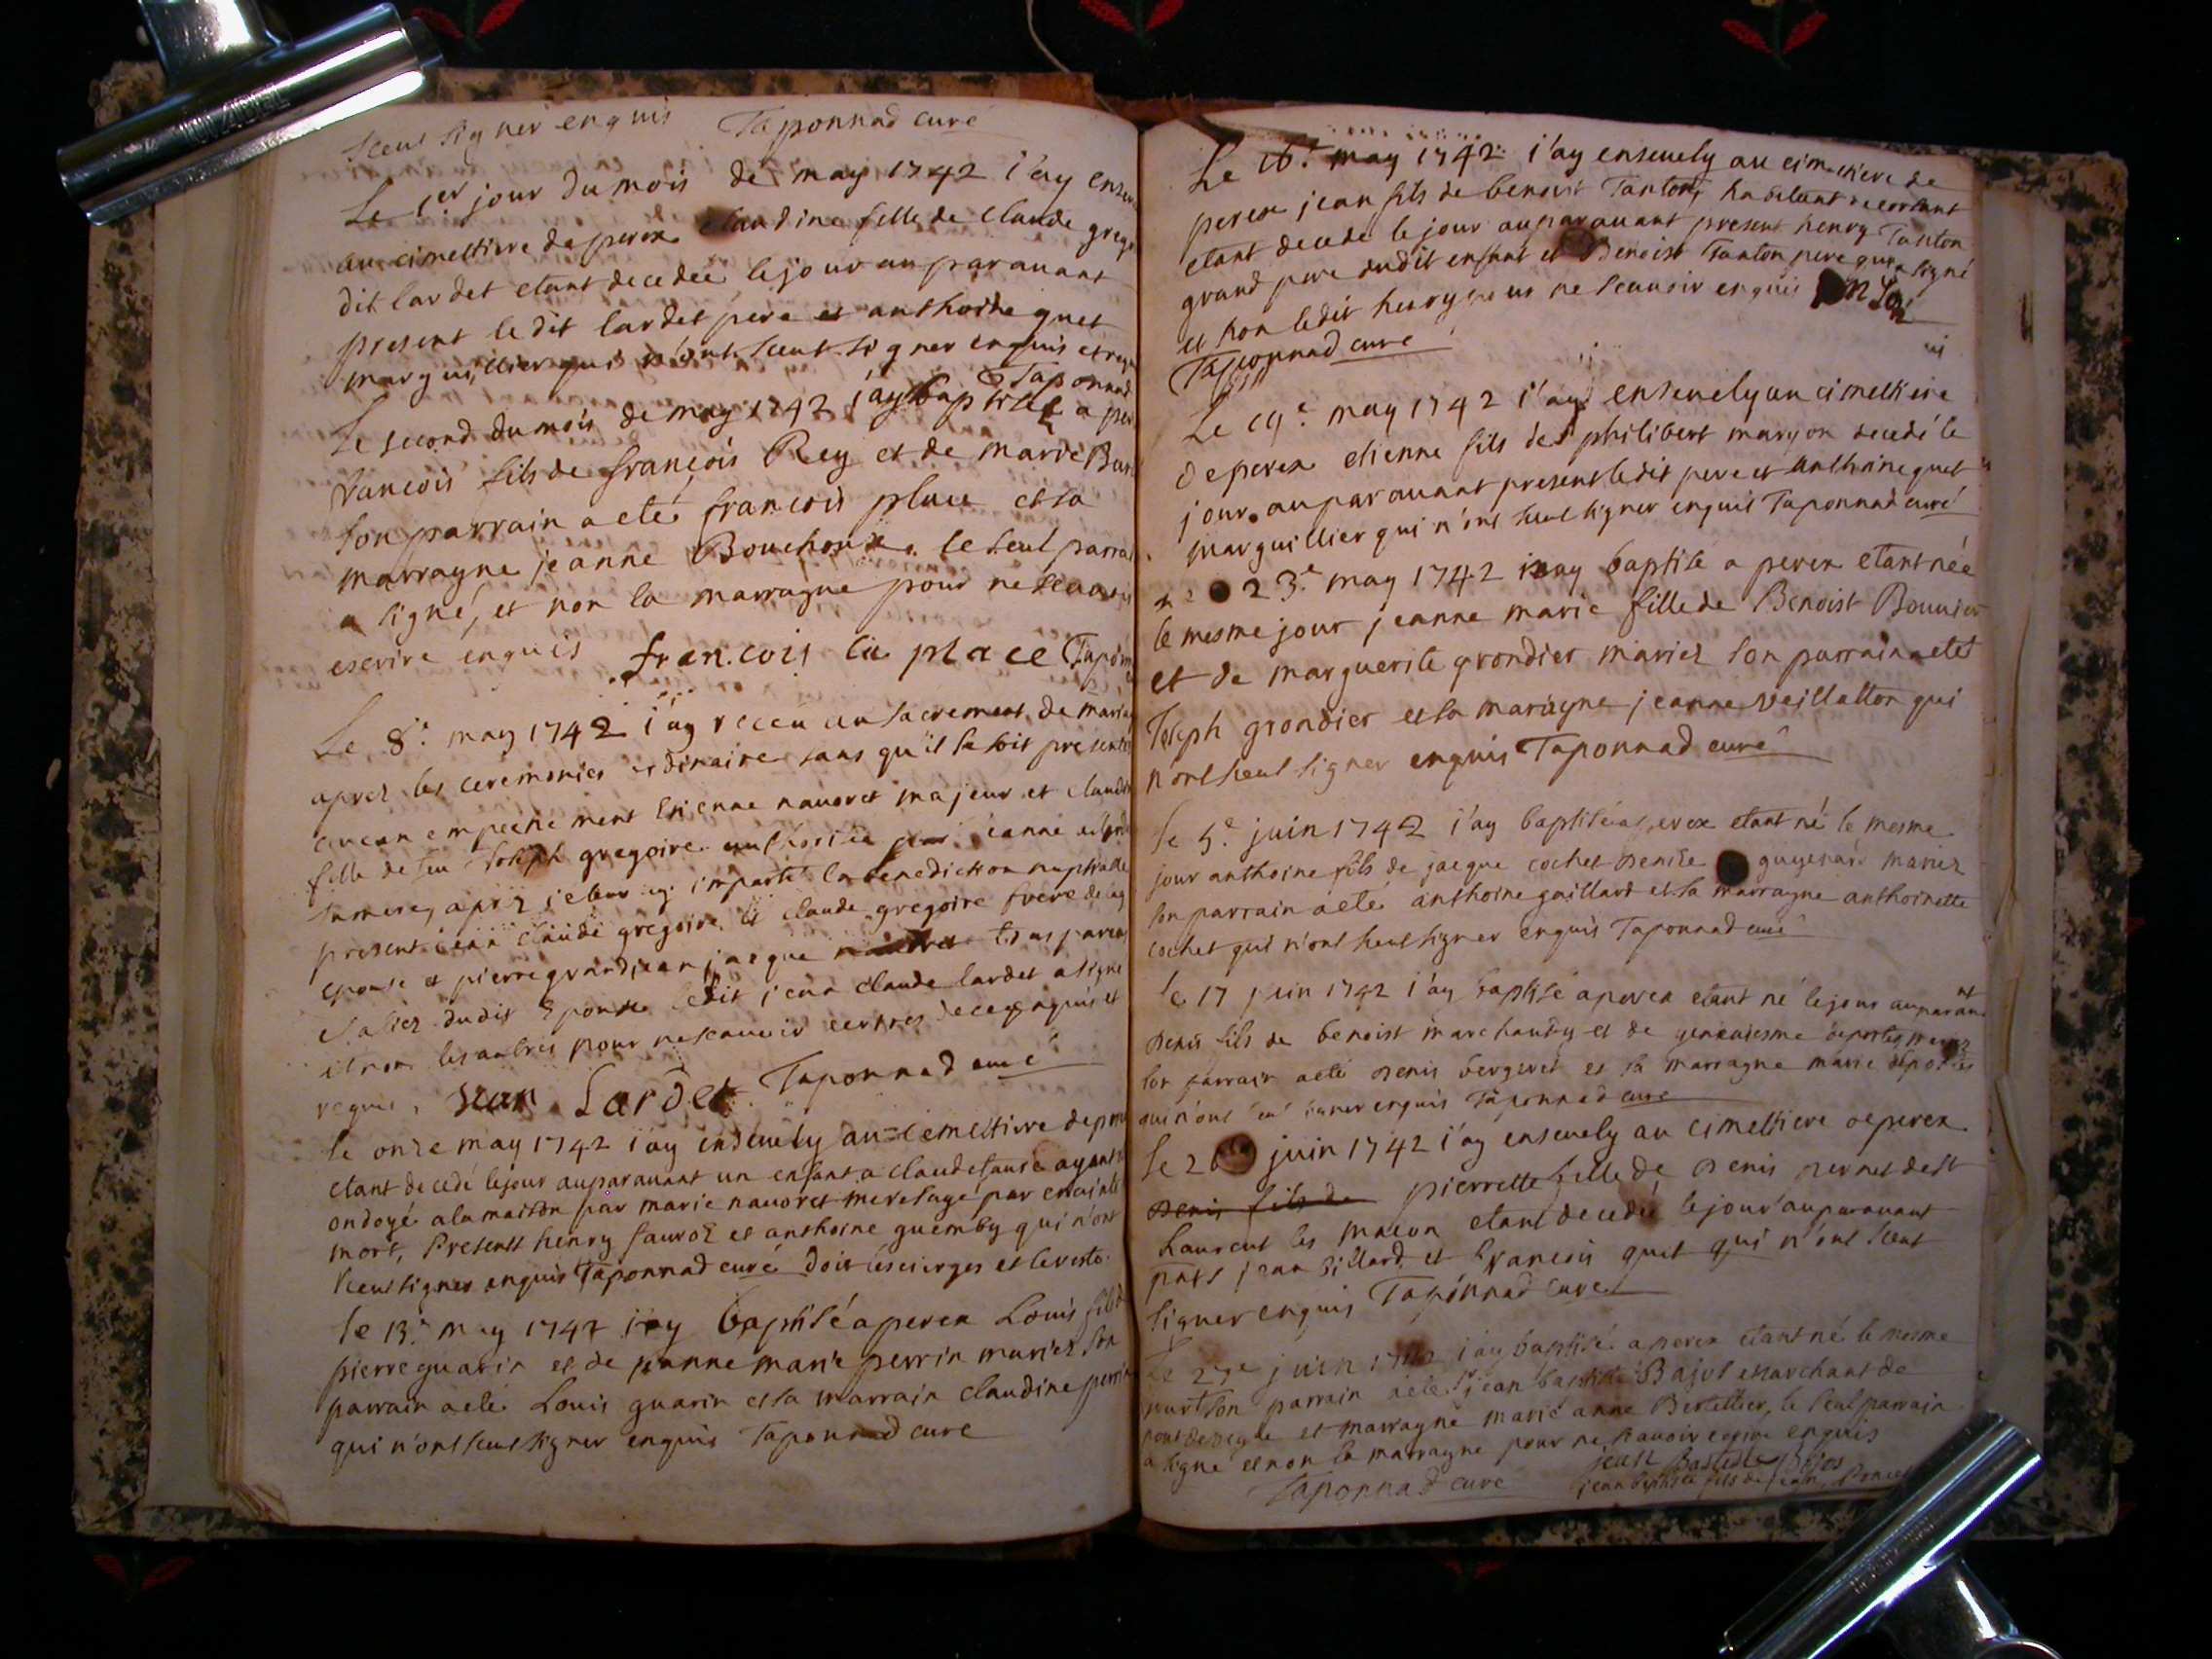 sceut signer enquis Taponnad curé
Le 1er jour du mois de may 1742 i'ay ense
au cimettiere de perex claudine fille de claude grego
dit lardet etant decedée le jour auparauant
present le dit lardet pere et anthoine guet
marguillier qui n'ont sceut signer enquis et req
Taponnad
Le second du mois de may 1742 i'ay baptisé a per
francois fils de françois Rey et de marie Bur
son parrain a eté francois place et sa
marragne jeanne Bouchoux. le seul parra
a signé, et non la marragne pour ne scauoi
escrire enquis francois la place Tapon
Le 8e may 1742 i'ay receu au sacrement de maria
aprez les ceremonies ordinaires sans qu'il se soit presenté
aucun empechement Etienne nauoret majeur et claud
fille de feu Joseph gregoire authorisée par jeanne
sa mere, aprez je leur ay imparti la benediction nuptialle
present jean claude gregoire et claude gregoire frere de la
epouse et pierre grandjean jacque tous parens
et alliez dudit Epoux ledit jean claude lardet a signé
et non les autres pour ne scauoir de ce enquis et
requis, jean Lardet Taponnad curé
le onze may 1742 i'ay enseuely au cemettiere de per
etant decedé le jour auparauant un enfant a claude faure ayant
ondoyé a la maison par marie nauoret mere sage par crainte
mort, Present henry fauroz et anthoine guemby qui n'ont
sceut signer enquis Taponnad curé doit les cierges et le reste.
le 13e may 1742 i'ay baptisé a perex Louis fils d
pierre guarin et de jeanne marie perrin mariez son
parrain a eté Louis guarin et sa marrain claudine perrin
qui n'ont sceut signer enquis Taponnad curé
Le 16e may 1742 i'ay enseuely au cimettiere de
perex jean fils de benoist Tanton, habitant
etant decedé le jour auparauant present henry Tanton
grand pere dudit enfant et Benoist Tanton pere qui a signé
et non ledit henry pour ne scauoir enquis
Taponnad curé
Le 19e may 1742 i'ay enseuely au cimettiere
de perex etienne fils de philibert maryon decedé le
jour auparauant present ledit pere et anthoine guet
marguillier qui n'ont sceut signer enquis Taponnad curé
23e may 1742 i'ay baptisé a perex etant née
le mesme jour jeanne marie fille de Benoist Bouuier
et de marguerite grondier mariez son parrain a eté
Joseph grondier et sa maragne jeanne veillatton qui
n'ont sceut signer enquis Taponnad curé
le 5e juin 1742 i'ay baptisé a perex etant né le mesme
jour anthoine fils de jacque cochet denise guyenard mariez
son parrain a eté anthoine gaillard et sa marragne anthoinette
cochet qui n'ont sceut signer enquis Taponnad curé
le 17 juin 1742 i'ay baptisé a perex etant né le jour auparauant
denis fils de benoist marchandy et de deportes mariez
son parrain a eté denis bergeret et sa marragne marie deportes
qui n'ont sceu signer enquis Taponnad curé
le 26 juin 1742 i'ay enseuely au cimettiere de perex
denis fils de pierrette fille de denis pernet de st
Laurent les macon etant decedée le jour auparauant
pnts jean billard et francois guet qui n'ont sceut
signer enquis Taponnad curé
juin 1742 i'ay baptisé a perex etant né le mesme
jour son parrain a eté sr jean baptiste Bajot marchant de
pont de veyle et marragne marie anne Berettier, le seul parrain
a signé et non la marragne pour ne scauoir escrire enquis
jean Bastiste Bajos
Taponnad curé jean baptiste fils de jean Poncet